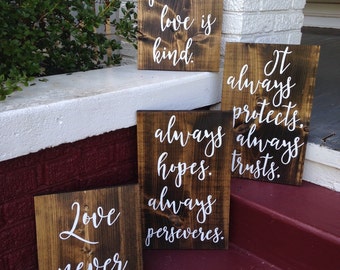 love is
kind.
It
always
protects.
always
trusts.
always
hopes.
always
perseveres.
Love
never